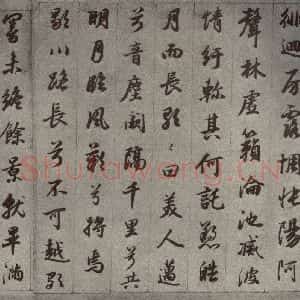 徊房露惆悵陽阿
聲林虛籟淪池滅波
情紆軫其何託愬皓
月而長歌〻曰美人邁
兮音塵闕隔千里兮共
明月臨風歎兮將焉
歇川路長兮不可越歌
響未終餘景就畢滿
Shufawang.CN